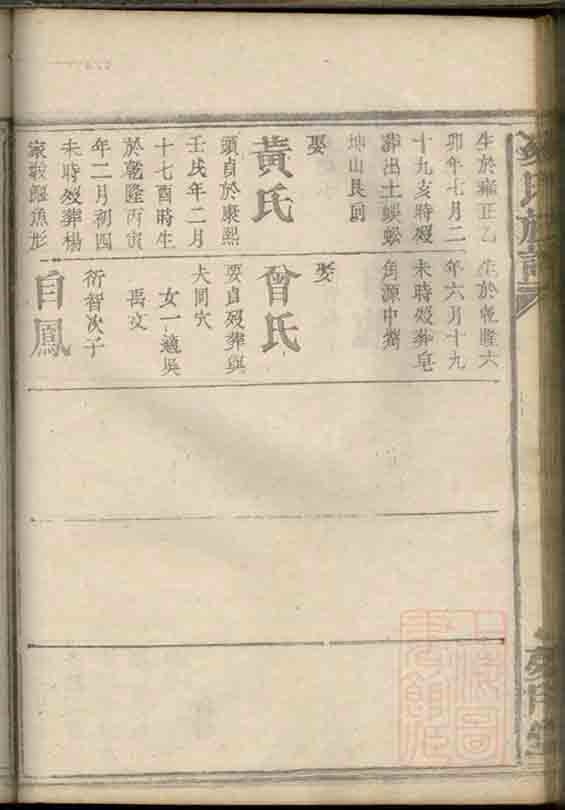 生於雍正乙
卯年七月二
十九亥時歿
葬出土蜈蚣
坤山艮向
娶
黃氏
頭貞於康熙
壬戌年二月
十七酉時生
於乾隆丙寅
年二月初四
未時歿葬楊
家
魚形
生於乾隆六
年六月十九
未時歿葬皂
角源中
娶
曾氏
要貞歿葬與
夫同穴
女一適吳
禹文
衍智次子
自鳳
氏族譜